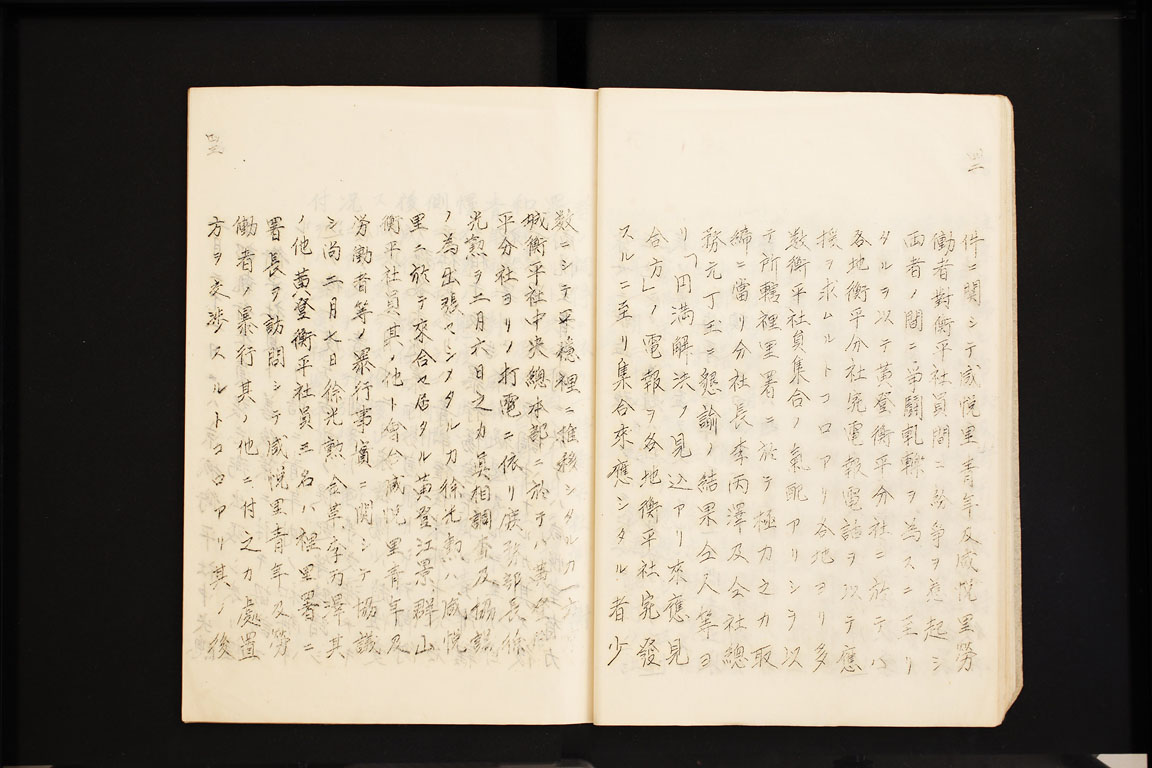 四二
件ニ関シテ咸悦里青年及咸悦里労
働者對衡平社員間ニ紛争ヲ惹起シ
両者ノ間ニ争闘軋轢ヲ為スニ至リ
タルヲ以テ黄登衡平分社ニ於テハ
各地衡平分社宛電報電話ヲ以テ應
援ヲ求ムルトコロアリ各地ヨリ多
数衡平社員集合ノ氣配アリシヲ以
テ所轄裡里署ニ於テ極力之カ取
締ニ當リ分社長李丙澤及仝社總
務元丁玉ニ懇諭ノ結果仝人等ヨ
リ「円満解決ノ見込アリ來應見
合方」ノ電報ヲ各地衡平社宛發
スルニ至リ集合來應シタル者少
四三
数ニシテ平穏裡ニ推移シタル
城衡平社中央總本部ニ於テハ黄登
平分社ヨリノ打電ニ依リ庶務部長徐
光勲ヲ二月六日之カ真相調査及協議
ノ為出張セシメタルカ徐光勲ハ咸悦
里ニ於テ來合セ居タル黄登江景群山
衡平社員其ノ他ト會合咸悦里青年及
労働者等ノ暴行事實ニ関シテ協議
シ尚二月七日徐光勲 澤其
ノ他黄登衡平社員三名ハ裡里署ニ
署長ヲ訪問シテ咸悦里青年及労
働者ノ暴行其ノ他ニ付之カ處置
方ヲ交渉スルトコロアリ其ノ後